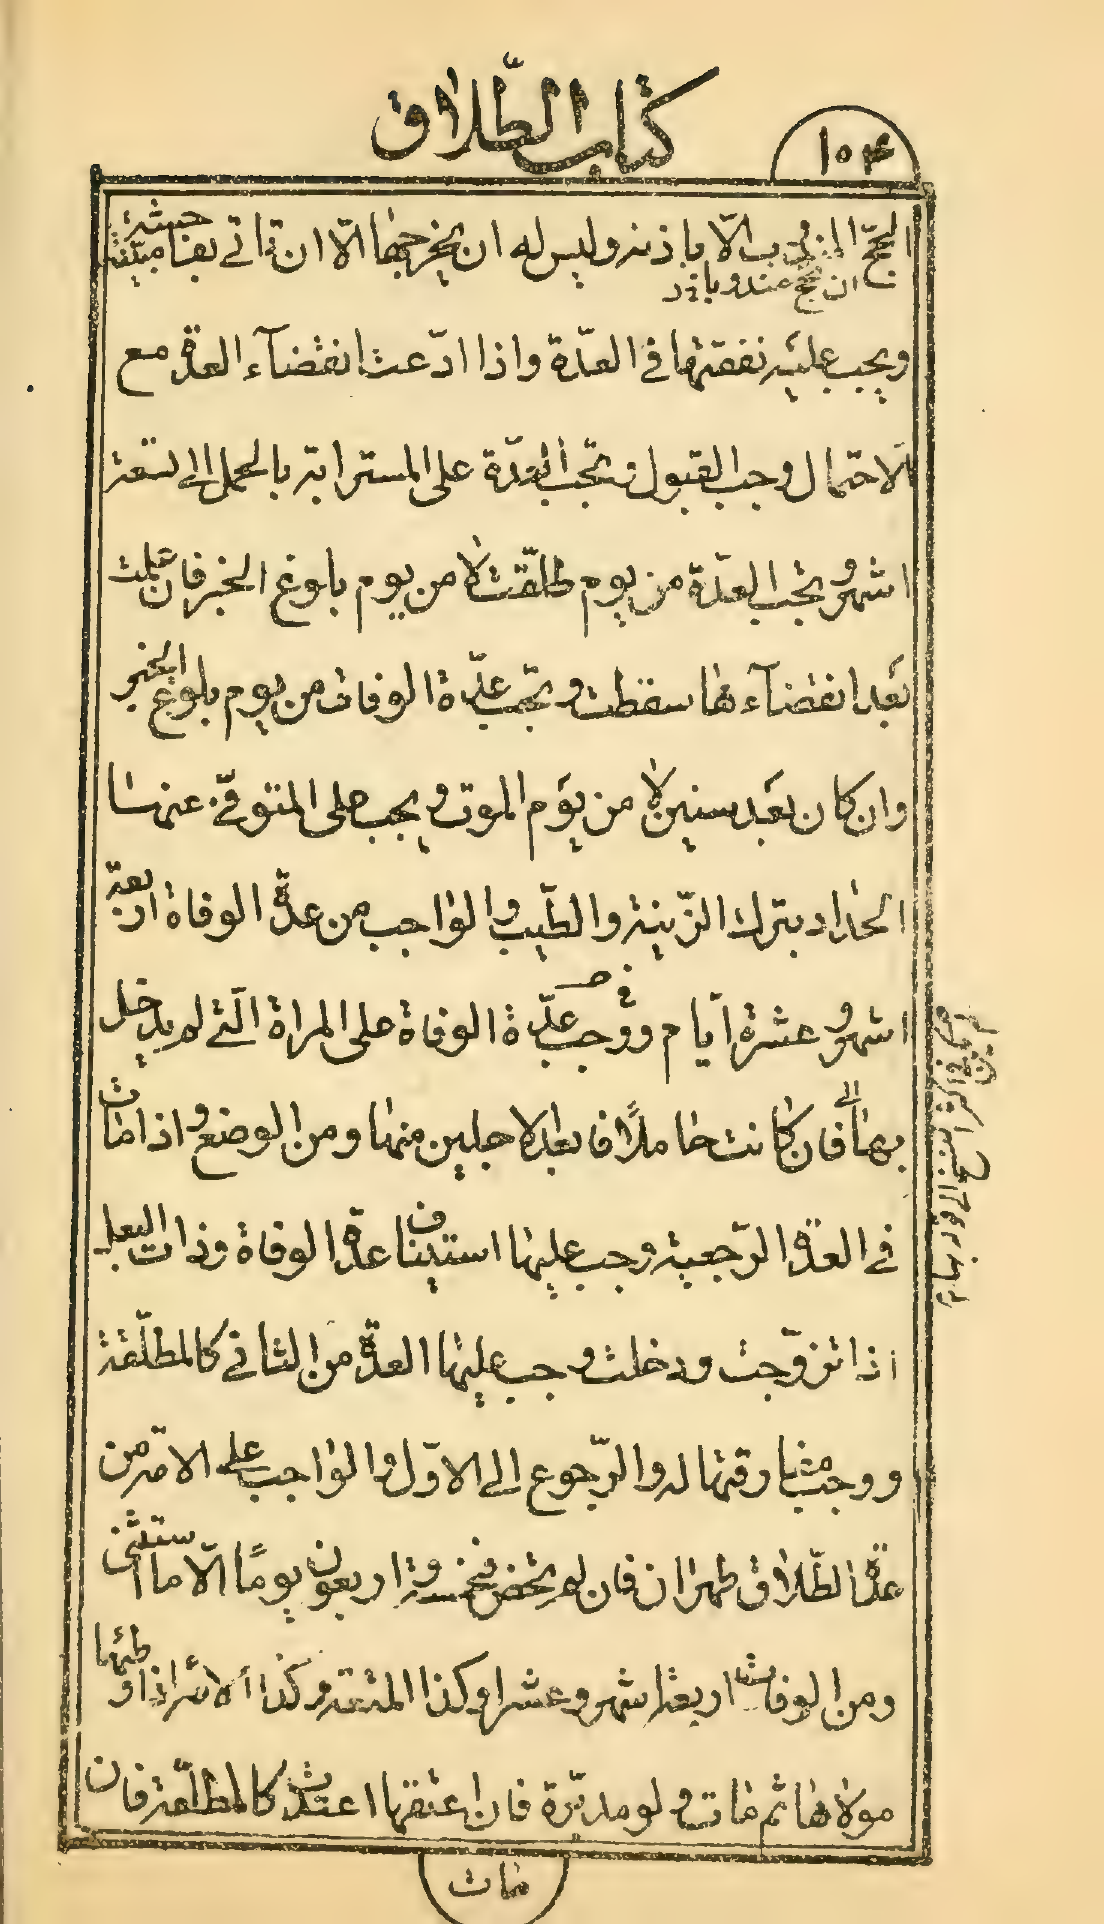 كتاب الطّلاق
١٥٤
الحجّ المندوب الّا باذنه وليس له ان يخرجها الّا ان تاتي بفاحشة مبيّنة
ان حج مندوبا
ويجب عليه نفقتها في العدّة واذا ادّعت انقضآء العدة مع
الاحتمال وجب القبول وتجب العدّة على المسترابة بالحمل الى تسعة
اشهر وتجب العدّة من يوم طلّقت لا من يوم بلوغ الخبر فان ثبت
بعد انقضآءها سقطت وتجب عدّة الوفات من يوم بلوغ الخبر
وان كان بعد سنين لا من يوم الموت ويجب على المتوفّى عنها
الحداد بترك الزّينة والطّيب والواجب من عدّة الوفاة اربعة
اشهر وعشرة ايّام ووجب عدّة الوفاة على المراة الّتي لم يدخل
بها فان كانت حاملاً فابعد الاجلين منها ومن الوضع واذا مات
في العدّة الرّجعية وجب عليها استيناف عدّة الوفاة وذات البعل
اذا تزوّجت ودخلت وجب عليها العدّة من الثاني كالمطلّقة
ووجب مفارقتها له والرّجوع الى الاوّل والواجب على الامة من
عدّة الطّلاق طهران فان لم تحض فخمسة واربعون يومًا الّا ما استثنى
ومن الوفات اربعة اشهر وعشرا وكذا المتعة وكذا الامة اذا وطئها
مولاها ثم مات ولو مدبّرة فان اعتقها اعتدّت كالمطلّقة فان
مات